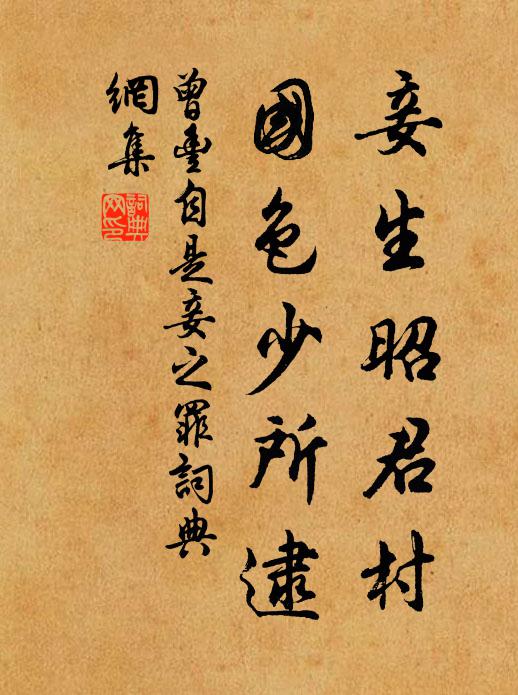 妾生昭君村
國色少所逮
曾豐自是妾之罪詞典
網集
詞典
网印